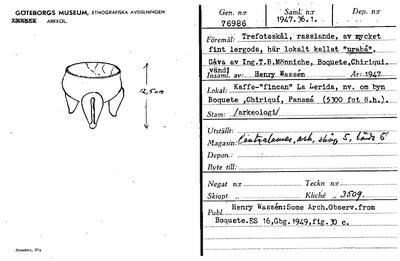 GÖTEBORGS MUSEUM, ETNOGRAFISKA AVDELNINGEN
ARKEOL.
12,5cm
Gen. n:r
76986
Saml. n:r
1947.36.1.
Dep. n:r
Föremål: Trefotsskål, rasslande, av mycket
fint lergods, här lokalt kallat "urabá".
Gåva av Ing.T.B.Mönniche, Boquete,Chiriqui.
vänd!
Insaml. av: Henry Wassén År: 1947
Lokal: Kaffe-"fincan" La Lerida, nv. om byn
Boquete ,Chiriquí, Panamá (5300 fot ö.h.).
Stam: /arkeologi/
Utställt:
Magasin: 5,
Depon.:
Byte till:
Negat n:r Teckn n:r
Skiopt. » Kliché » 3509.
Publ. Henry Wassén:Some Arch.Observ.from
Boquete.ES 16,Gbg.1949,fig.30 c.